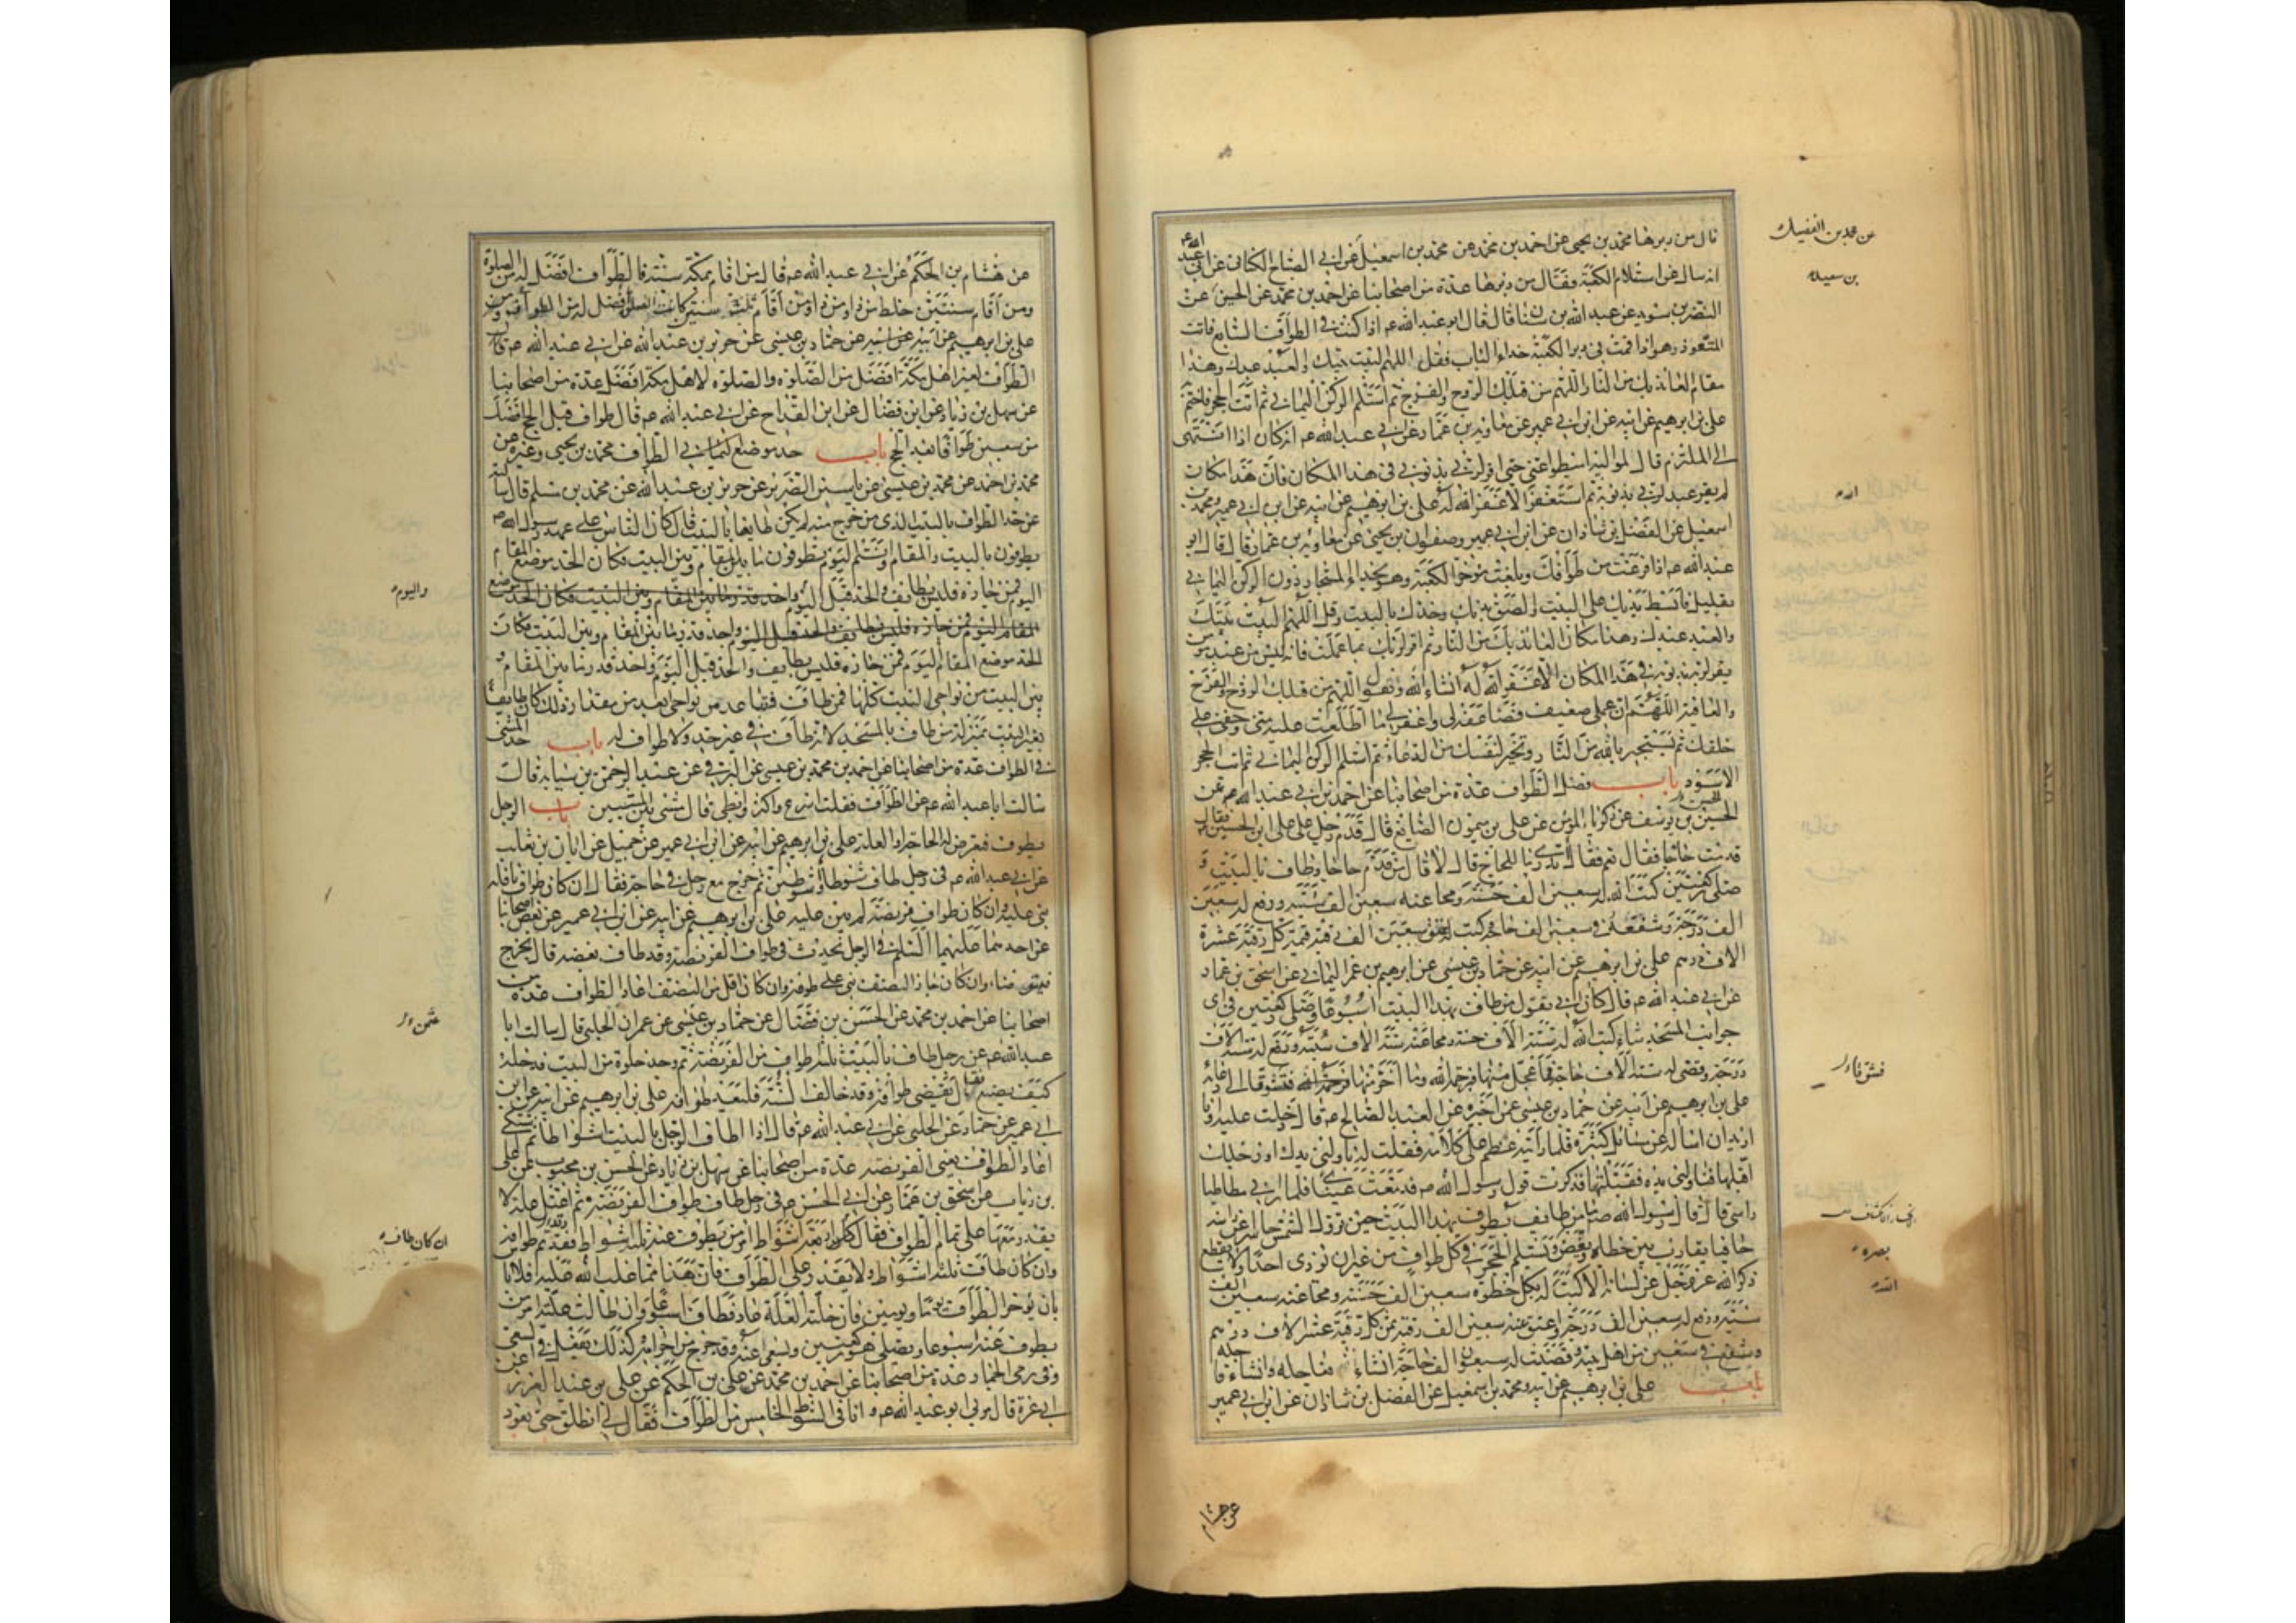 قال من دبرها محمد بن يحيى عن احمد بن محمد عن محمد بن اسمعيل عن ابي الصباح الكناني عن ابي عبد الله ع
انه سال عن استلام الكعبة فقال من دبرها عدة من اصحابنا عن احمد بن محمد عن الحسين عن
النضر بن سويد عن عبد الله بن سنان قال قال ابو عبد الله ع اذا كنت في الطواف السابع فائت
المتعوذ وهو اذا قمت في دبر الكعبة حذاء الباب فقل اللهم البيت بيتك والعبد عبدك وهذا
مقام العائذ بك من النار اللهم من قبلك الروح والفرج ثم استلم الركن اليماني ثم ائت الحجر فاختم
علي بن ابرهيم عن ابيه عن ابن ابي عمير عن معاوية بن عمار عن ابي عبد الله ع انه كان اذا انتهى
الى الملتزم قال لمواليه اميطوا عني حتى اقر لربي بذنوبي في هذا المكان فان هذا مكان
لم يقر عبد لربه بذنوبه ثم استغفر الا غفر الله له علي بن ابرهيم عن ابيه عن ابن ابي عمير ومحمد بن
اسمعيل عن الفضل بن شاذان عن ابن ابي عمير وصفوان بن يحيى عن معاوية بن عمار قال قال ابو
عبد الله ع اذا فرغت من طوافك وبلغت مؤخر الكعبة وهو بحذاء المستجار دون الركن اليماني
بقليل فابسط يديك على البيت والصق بدنك وخدك بالبيت وقل اللهم البيت بيتك
والعبد عبدك وهذا مكان العائذ بك من النار ثم اقر لربك بما عملت فانه ليس من عبد مؤمن
يقر لربه بذنوبه في هذا المكان الا غفر الله له انشاء الله وتقول اللهم من قبلك الروح والفرج
والعافية اللهم ان عملي ضعيف فضاعفه لي واغفر لي ما اطلعت عليه مني وخفي على
خلقك ثم تستجير بالله من النار وتخير لنفسك من الدعاء ثم استلم الركن اليماني ثم ائت الحجر
الاسود باب فضل الطواف عدة من اصحابنا عن احمد بن ابي عبد الله عن
الحسين بن يوسف عن زكريا المؤمن عن علي بن ميمون الصائغ قال قدم رجل على علي ابن الحسين فقال
قدمت حاجا فقال نعم فقال اتدري ما للحاج قال لا قال من قدم حاجا وطاف بالبيت و
صلى ركعتين كتب الله له سبعين الف حسنة ومحا عنه سبعين الف سيئة ورفع له سبعين
الف درجة وشفعه في سبعين الف حاجة وكتب له عتق سبعين الف رقبة قيمة كل رقبة عشرة
الاف درهم علي بن ابرهيم عن ابيه عن حماد بن عيسى عن ابرهيم بن عمر اليماني عن اسحق بن عمار
عن ابي عبد الله ع قال كان ابي يقول من طاف بهذا البيت اسبوعا وصلى ركعتين في اي
جوانب المسجد شاء كتب الله له ستة الاف حسنة ومحا عنه ستة الاف سيئة ورفع له ستة الاف
درجة وقضى له ستة الاف حاجة فما عجل منها فبرحمة الله وما اخر منها
علي بن ابرهيم عن ابيه عن حماد بن عيسى عمن اخبره عن العبد الصالح ع قال دخلت عليه وانا
اريد ان اساله عن مسائل كثيرة فلما رايته عظم علي كلامه فقلت له ناولني يدك او رجلك
اقبلها فناولني يده فقبلتها فذكرت قول رسول الله ص فدمعت عيناي فلما راني مطاطيا
راسي قال قال رسول الله ص ما من طايف يطوف بهذا البيت حين تزول الشمس حاسرا عن راسه
حافيا يقارب بين خطاه ويغض ويستلم الحجر في كل طواف من غير ان يؤذي احدا ولا يقطع
ذكر الله عز وجل عن لسانه الا كتب له بكل خطوة سبعين الف حسنة ومحا عنه سبعين الف
سيئة ورفع له سبعين الف درجة واعتق عنه سبعين الف رقبة ثمن كل رقبة عشرة الاف درهم
وشفع في سبعين من اهل بيته وقضيت له سبعون الف حاجة انشاء فعاجله وانشاء فا جله
باب علي بن ابرهيم عن ابيه ومحمد بن اسمعيل عن الفضل بن شاذان عن ابن ابي عمير
عن هشام
عن محمد بن الفضيل
بصره
عن هشام بن الحكم عن ابي عبد الله ع قال من اقام بمكة سنة فالطواف افضل له من الصلوة
ومن اقام سنتين خلط من ذا ومن ذا ومن اقام ثلث سنين كانت الصلوة افضل له من الطواف
علي بن ابرهيم عن ابيه عن حماد بن عيسى عن حريز بن عبد الله عن ابي عبد الله ع قال
الطواف لغير اهل مكة افضل من الصلوة والصلوة لاهل مكة افضل عدة من اصحابنا
عن سهل بن زياد عن ابن فضال عن ابن القداح عن ابي عبد الله ع قال طواف قبل الحج افضل
من سبعين طوافا بعد الحج باب حد موضع الطواف محمد بن يحيى وغيره عن
محمد بن احمد عن محمد بن عيسى عن ياسين الضرير عن حريز بن عبد الله عن محمد بن مسلم قال سالته
عن حد الطواف بالبيت الذي من خرج منه لم يكن طايفا بالبيت قال كان الناس على عهد رسول الله ص
يطوفون بالبيت والمقام وانتم اليوم تطوفون ما بين المقام وبين البيت فكان الحد موضع المقام
اليوم فمن جازه فليس بطايف والحد قبل اليوم واحد قدر ما بين المقام وبين البيت فكان الحد موضع
المقام اليوم فمن جازه فليس بطايف والحد قبل اليوم واحد قدر ما بين المقام وبين البيت فكان
الحد موضع المقام اليوم فمن جازه فليس بطايف والحد قبل اليوم واحد قدر ما بين المقام و
بين البيت من نواحي البيت كلها فمن طاف فتباعد من نواحيه ابعد من مقدار ذلك كان طايفا
بغير البيت بمنزلة من طاف بالمسجد لانه طاف في غير حد ولا طواف له باب حد المشي
في الطواف عدة من اصحابنا عن احمد بن محمد بن عيسى عن البرقي عن عبد الرحمن بن سيابة قال
سالت ابا عبد الله ع عن الطواف فقلت اسرع واكثر او ابطي قال مشي بين المشيين باب الرجل
يطوف فتعرض له الحاجة او العلة علي بن ابرهيم عن ابيه عن ابن ابي عمير عن جميل عن ابان بن تغلب
عن ابي عبد الله ع في رجل طاف شوطا او شوطين ثم خرج مع رجل في حاجة فقال ان كان طواف نافلة
بنى عليه وان كان طواف فريضة لم يبن عليه علي بن ابرهيم عن ابيه عن ابن ابي عمير عن بعض اصحابنا
عن احدهما عليهما السلم في الرجل يحدث في طواف الفريضة وقد طاف بعضه قال يخرج
فيتوضا وان كان جاز النصف بنى على طوافه وان كان اقل من النصف اعاد الطواف عدة من
اصحابنا عن احمد بن محمد عن الحسن بن فضال عن حماد بن عيسى عن عمران الحلبي قال سالت ابا
عبد الله ع عن رجل طاف بالبيت ثلثة طواف من الفريضة ثم وجد خلوة من البيت فدخله
كيف يصنع فقال يقضي طوافه وقد خالف السنة فليعد طوافه علي بن ابرهيم عن ابيه عن ابن
ابي عمير عن حماد عن الحلبي عن ابي عبد الله ع قال اذا طاف الرجل بالبيت اشواطا ثم اشتكى
اعاد الطواف يعني الفريضة عدة من اصحابنا عن سهل بن زياد عن الحسن بن محبوب عن علي
بن رئاب عن اسحق بن عمار عن ابي الحسن ع في رجل طاف طواف الفريضة ثم اعتل علة لا
يقدر معها على تمام الطواف فقال ان كان طاف اربعة اشواط امر من يطوف عنه ثلثة اشواط فقد تم طوافه
وان كان طاف ثلثة اشواط ولا يقدر على الطواف فان هذا مما غلب الله عليه فلا باس
بان يؤخر الطواف يوما ويومين فان خلته العلة عاد فطاف اسبوعا وان طالت علته امر من
يطوف عنه اسبوعا ويصلي هو ركعتين ويسعى عنه وقد خرج من احرامه وكذلك يفعل في السعي
وفي رمي الجمار عدة من اصحابنا عن احمد بن محمد عن علي بن الحكم عن علي بن عبد العزيز عن
ابي غرة قال مر بي ابو عبد الله ع وانا في الشوط الخامس من الطواف فقال لي انطلق حتى نعود
واليوم
ان كان طاف